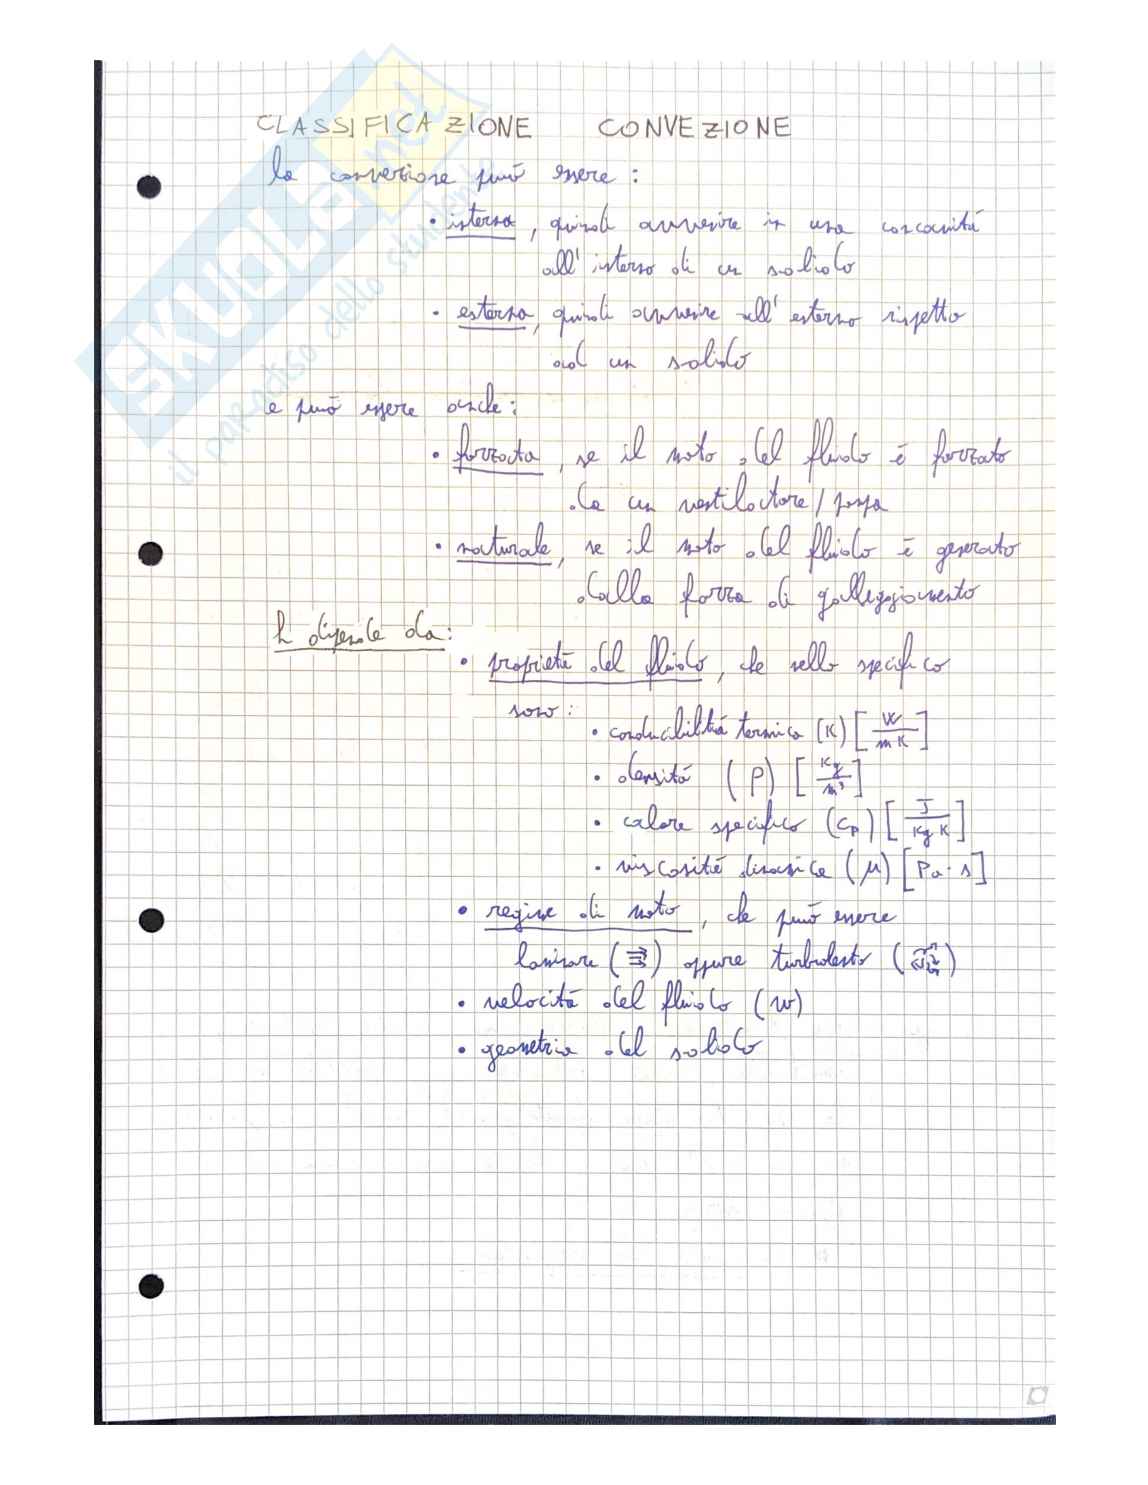 CLASSIFICAZIONE CONVEZIONE
la convezione può essere :
• interna, quindi avvenire in una concavità
all'interno di un solido
• esterna, quindi avvenire all'esterno rispetto
ad un solido
e può essere anche :
• forzata, se il moto del fluido è forzato
da un ventilatore / pompa
• naturale, se il moto del fluido è generato
dalla forza di galleggiamento
h dipende da :
• proprietà del fluido, che nello specifico
sono :
• conducibilità termica (K) [W/mK]
• densità (ρ) [Kg/m³]
• calore specifico (cp) [J/Kg K]
• viscosità dinamica (μ) [Pa · s]
• regime di moto, che può essere
laminare (⇶) oppure turbolento ( )
• velocità del fluido (w)
• geometria del solido
SKUOLA.net
il paradiso dello studente